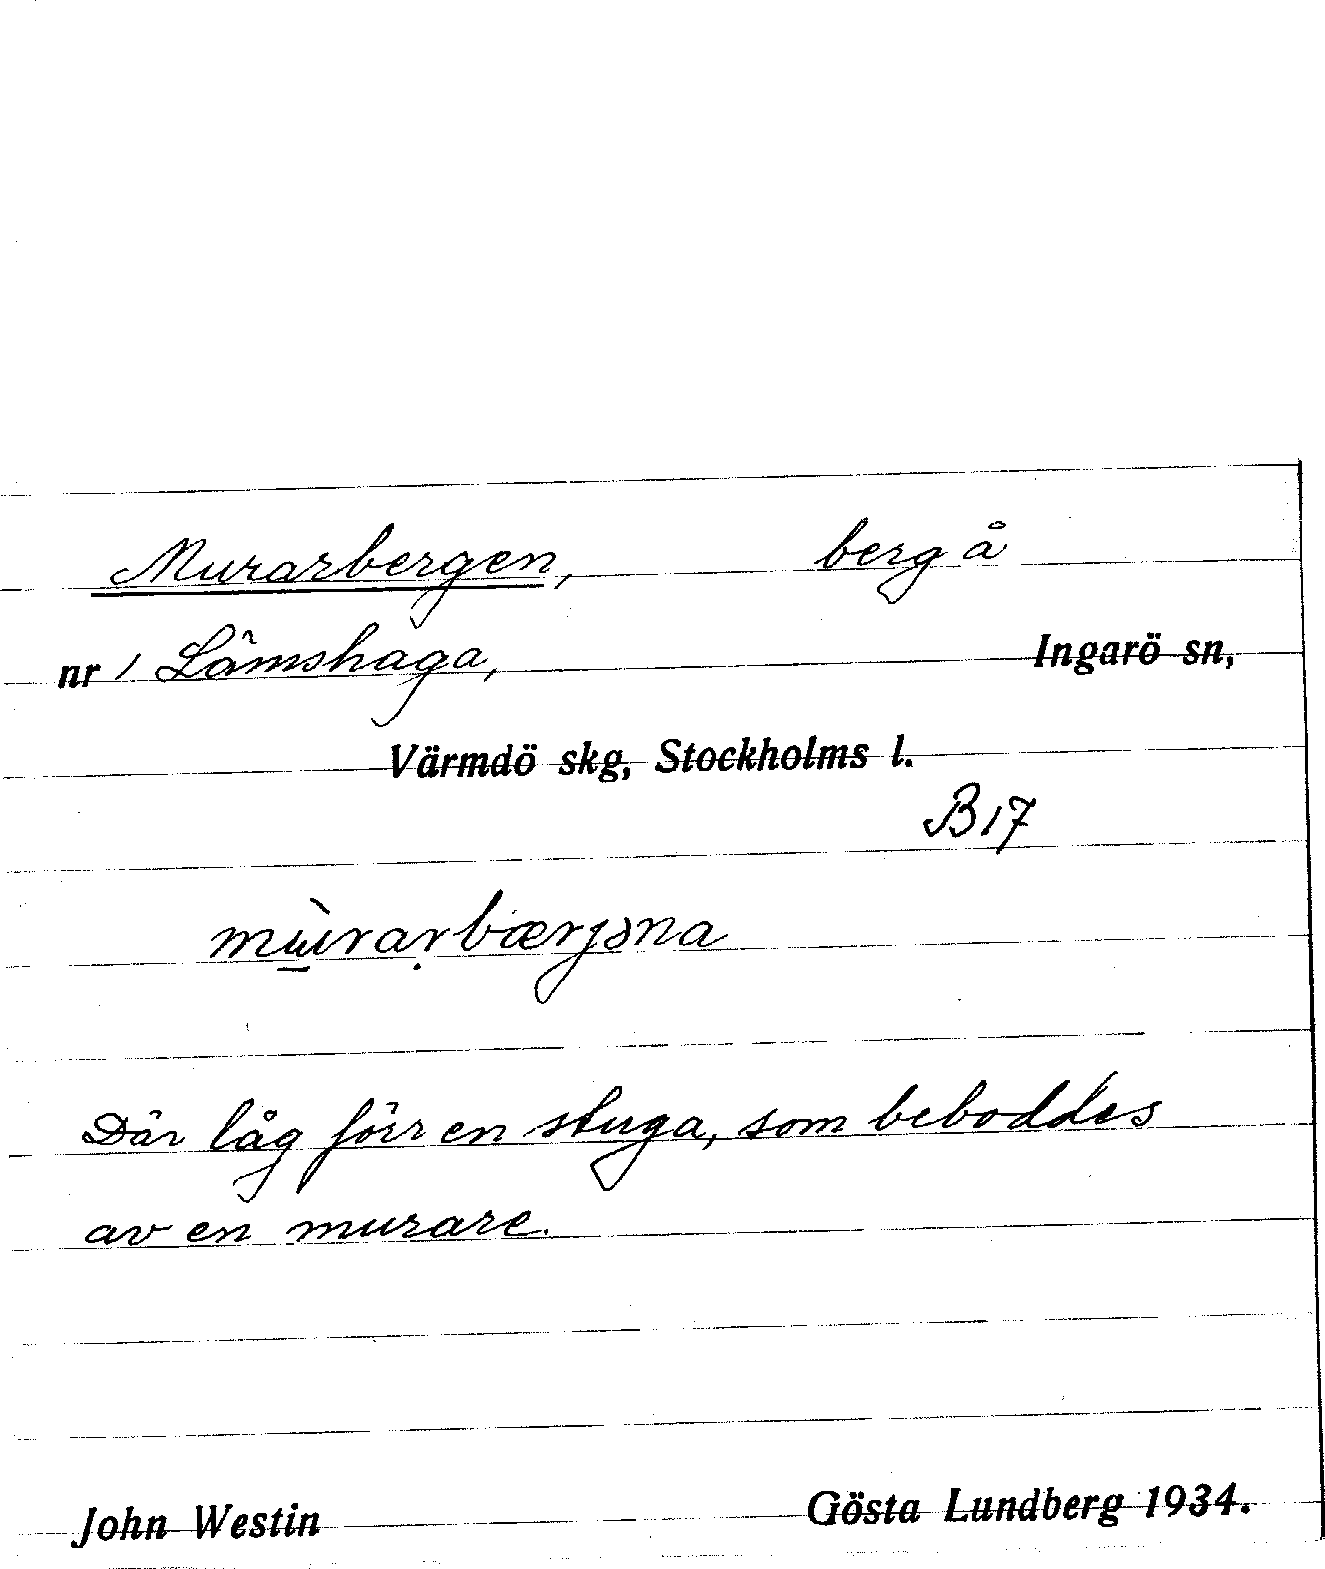 Murarbergen, berg å
nr 1 Lämshaga, Ingarö sn,
Värmdö skg, Stockholms l.
B 17
mù̱rarḅærjəna
Där låg förr en stuga, som beboddes
av en murare.
John Westin Gösta Lundberg 1934.